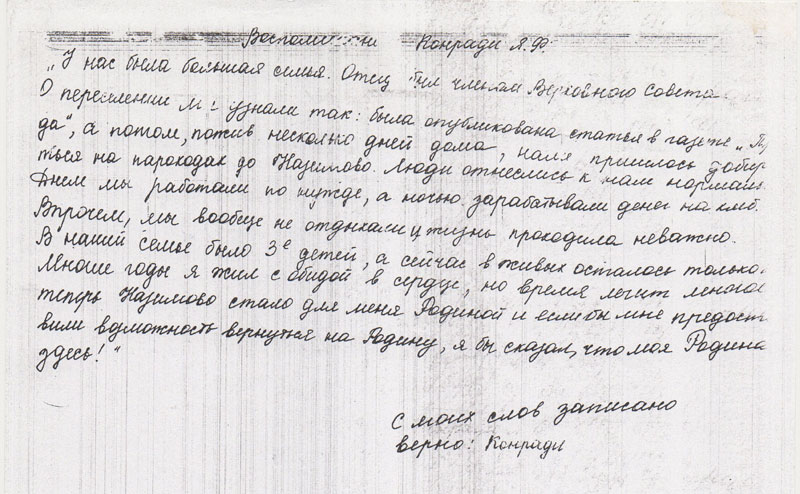 Воспоминания Конради Я.Ф.
„У нас была большая семья. Отец был членом Верховного Совета
О переселении мы узнали так: была опубликована статья в газете „
да“, а потом, пожив несколько дней дома, нам пришлось добир
ться на пароходах до Назимово. Люди отнеслись к нам нормаль
Днем мы работали по нужде, а ночью зарабатывали денег на хлеб.
Впрочем, мы вообще не отдыхали и жизнь проходила неважно.
В нашей семье было 3е детей, а сейчас в живых осталось только
Многие годы я жил с обидой в сердце, но время лечит
теперь Назимово стало для меня Родиной и если бы мне предост
вили возможность вернуться на Родину, я бы сказал, что моя Родина
здесь!“
С моих слов записано
верно: Конради